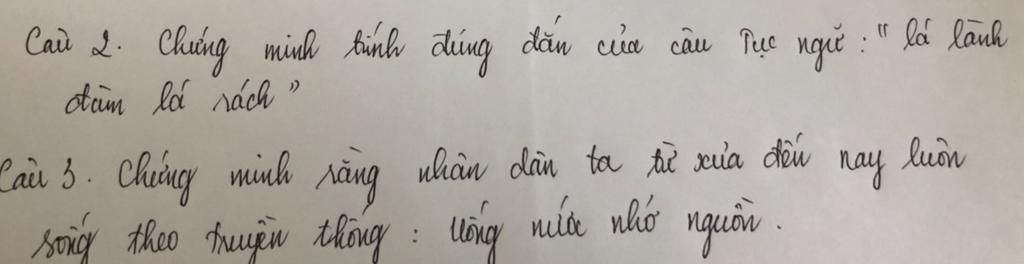 Câu 2. Chứng minh tính đúng đắn của câu Tục ngữ: "lá lành
đùm lá rách"
Câu 3. Chứng minh rằng nhân dân ta từ xưa đến nay luôn
sống theo truyền thống: Uống nước nhớ nguồn.